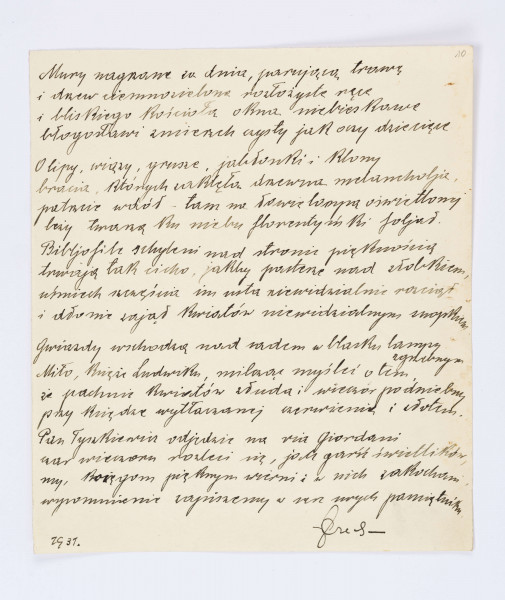 10
Mury nagrzane za dnia, parującą trawę
i drzew ciemnozielone rozłożyste ręce
i bliskiego kościoła okna niebieskawe
błogosławi zmierzch czysty jak oczy dziecięce
O lipy, wiązy, grusze, jabłonki i klony
bracia, których zaklęła drzewna melancholja,
patrzcie wkół - tam na ławie lampą oświetlony
leży twarzą ku niebu florentyński foljał.
Bibljofile schyleni nad stronic pięknością
trwają tak cicho, jakby pasterze nad żłóbkiem,
uśmiech szczęścia im usta niewidzialnie rozciął
i dłonie zajął kwiatów niewidzialnym snopkiem.
Gwiazdy wschodzą nad sadem w blasku lampy
Miło, księże Ludwiku, milcząc myśleć o tem
że pachnie kwiatów złuda i wieczór podniebny
przy księdze wytłaczanej czerwienią i złotem.
Pan Tyszkiewicz odjedzie na via Giordani
czar wieczoru rozleci się, jak garść świetlików,
my, księgom pięknym wierni i w nich zakochani
wspomnienie zapiszemy w sercowych pamiętniku
1931.